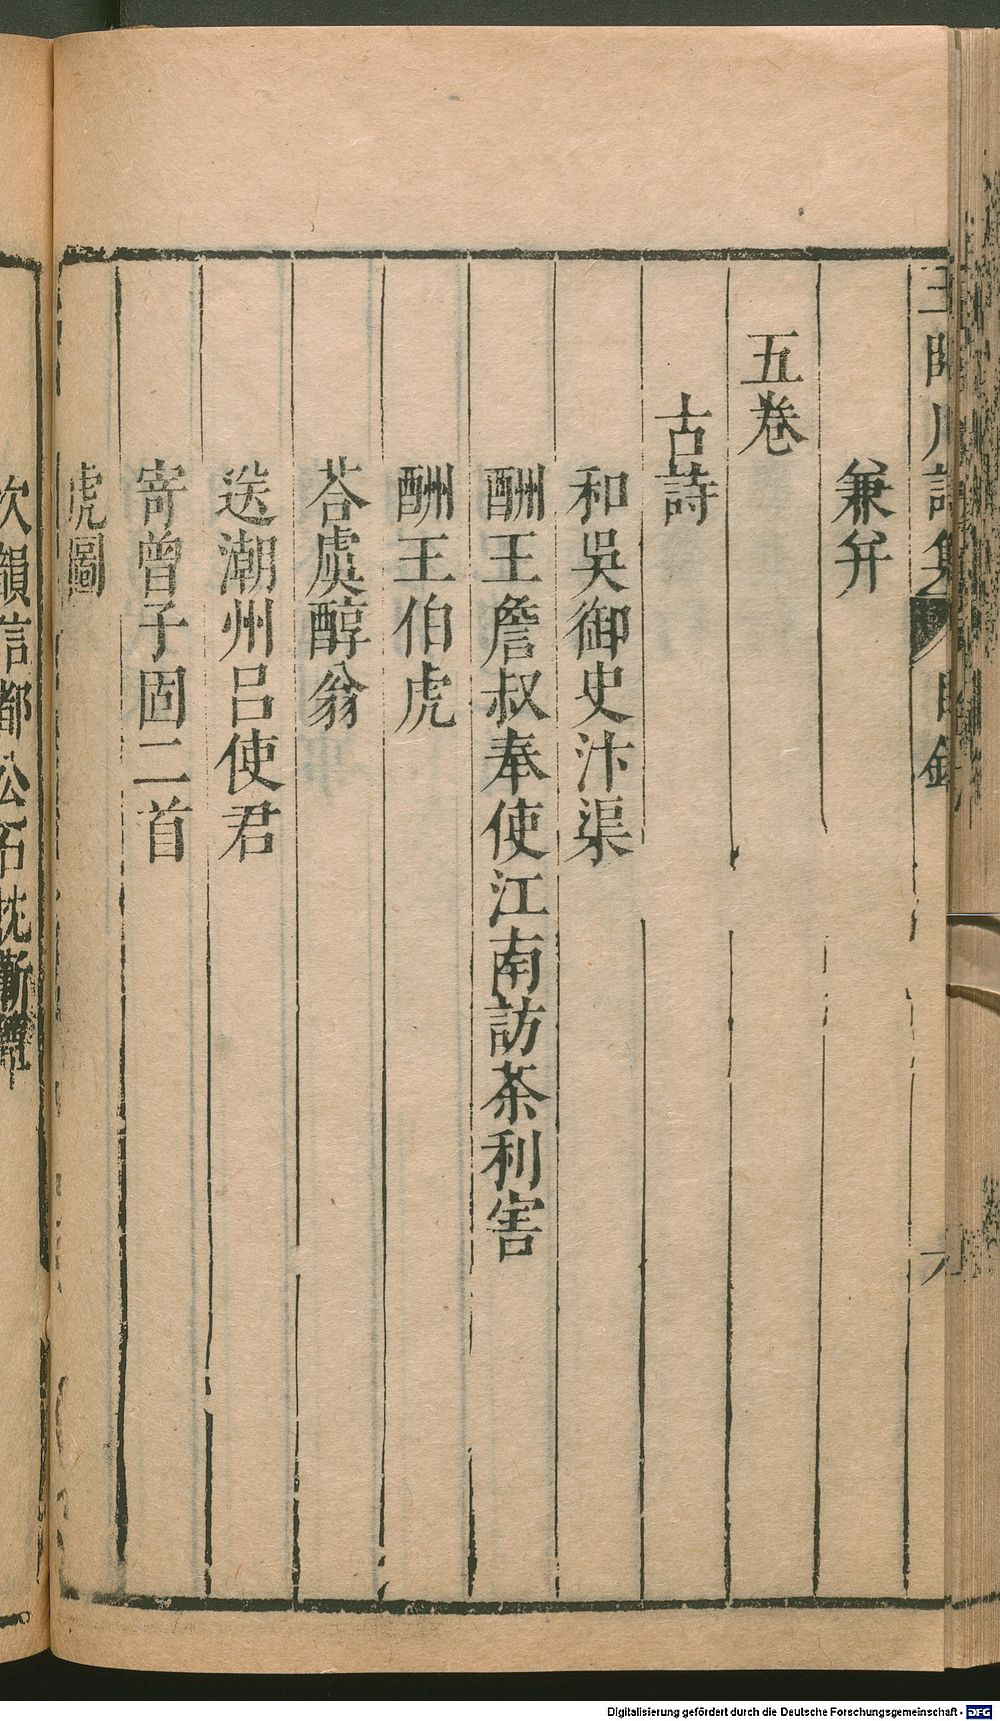 兼并
五卷
古詩
和吳御史汴渠
酬王詹叔奉使江南訪茶利害
酬王伯虎
荅虞醇翁
送潮州呂使君
寄曾子固二首
虎圖
次韻信都公石枕蘄
Digitalisierung gefördert durch die Deutsche Forschungsgemeinschaft - DFG